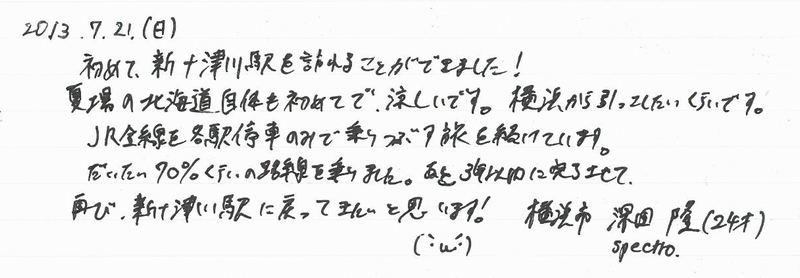 2013.7.21.(日)
初めて、新十津川駅を訪れることができました！
夏場の北海道自体も初めてで、涼しいです。横浜から引っこしたいくらいです。
JR全線を各駅停車のみで乗りつぶす旅を続けています。
だいたい90%くらいの路線を乗りました。あと3年以内に完了させて、
再び、新十津川駅に戻ってきたいと思います！ 横浜市 深田 隆(24才)
(:ω:) spectro.